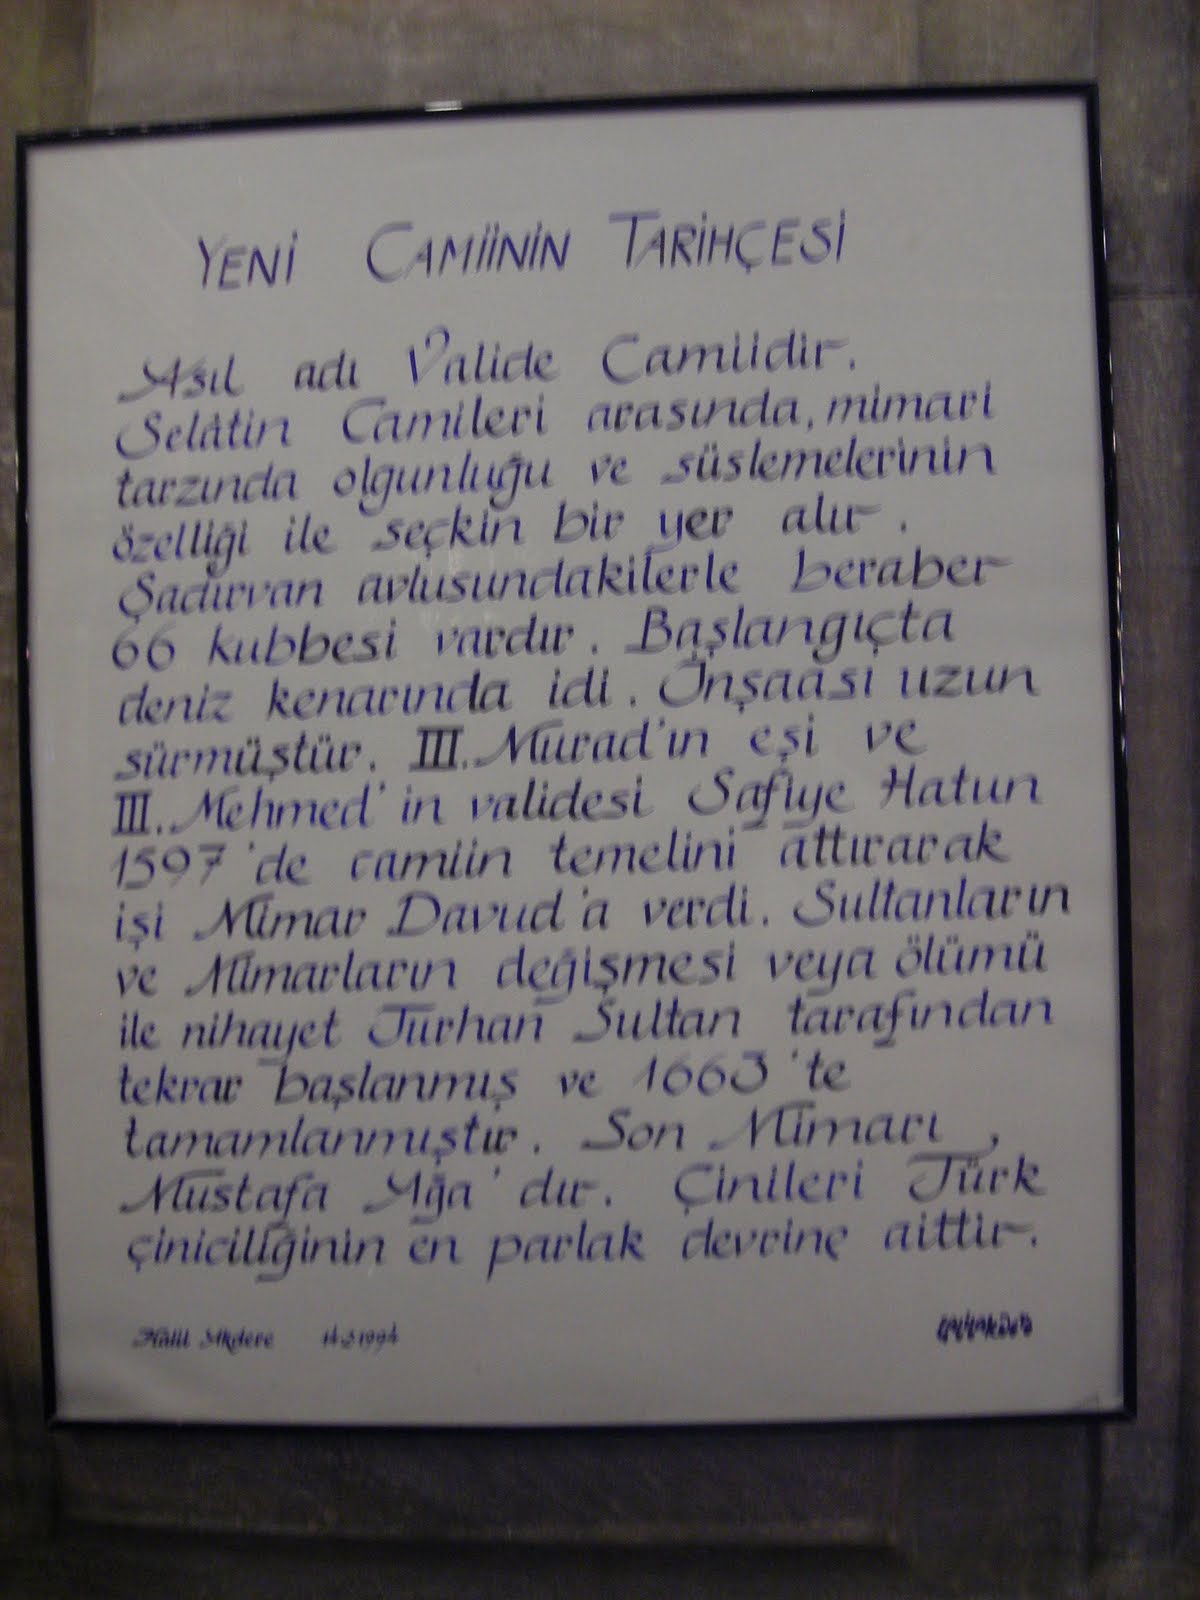 YENİ CAMİİNİN TARİHÇESİ
Asıl adı Valide Camiidir.
Selâtin Camileri arasında, mimari
tarzında olgunluğu ve süslemelerinin
özelliği ile seçkin bir yer alır.
Şadırvan avlusundakilerle beraber
66 kubbesi vardır. Başlangıçta
deniz kenarında idi. İnşaası uzun
sürmüştür. III. Murad'ın eşi ve
III. Mehmed'in validesi Safiye Hatun
1597'de camiin temelini attırarak
işi Mimar Davud'a verdi. Sultanların
ve Mimarların değişmesi veya ölümü
ile nihayet Turhan Sultan tarafından
tekrar başlanmış ve 1663'te
tamamlanmıştır. Son Mimarı,
Mustafa Ağa'dır. Çinileri Türk
çiniciliğinin en parlak devrine aittir.
Halil Akdere